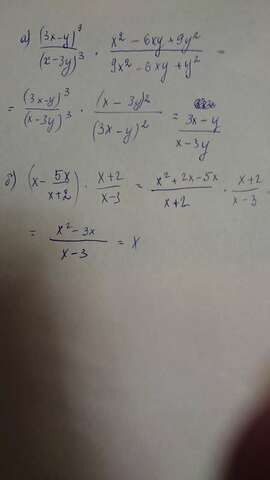 а) (3x-y)³/(x-3y)³ · x² - 6xy + 9y²/9x² - 6xy + y² =
= (3x-y)³/(x-3y)³ · (x - 3y)²/(3x-y)² = 3x - y/x - 3y
б) (x - 5x/x+2) · x+2/x-3 = x² + 2x - 5x/x+2 · x+2/x-3
= x² - 3x/x - 3 = x